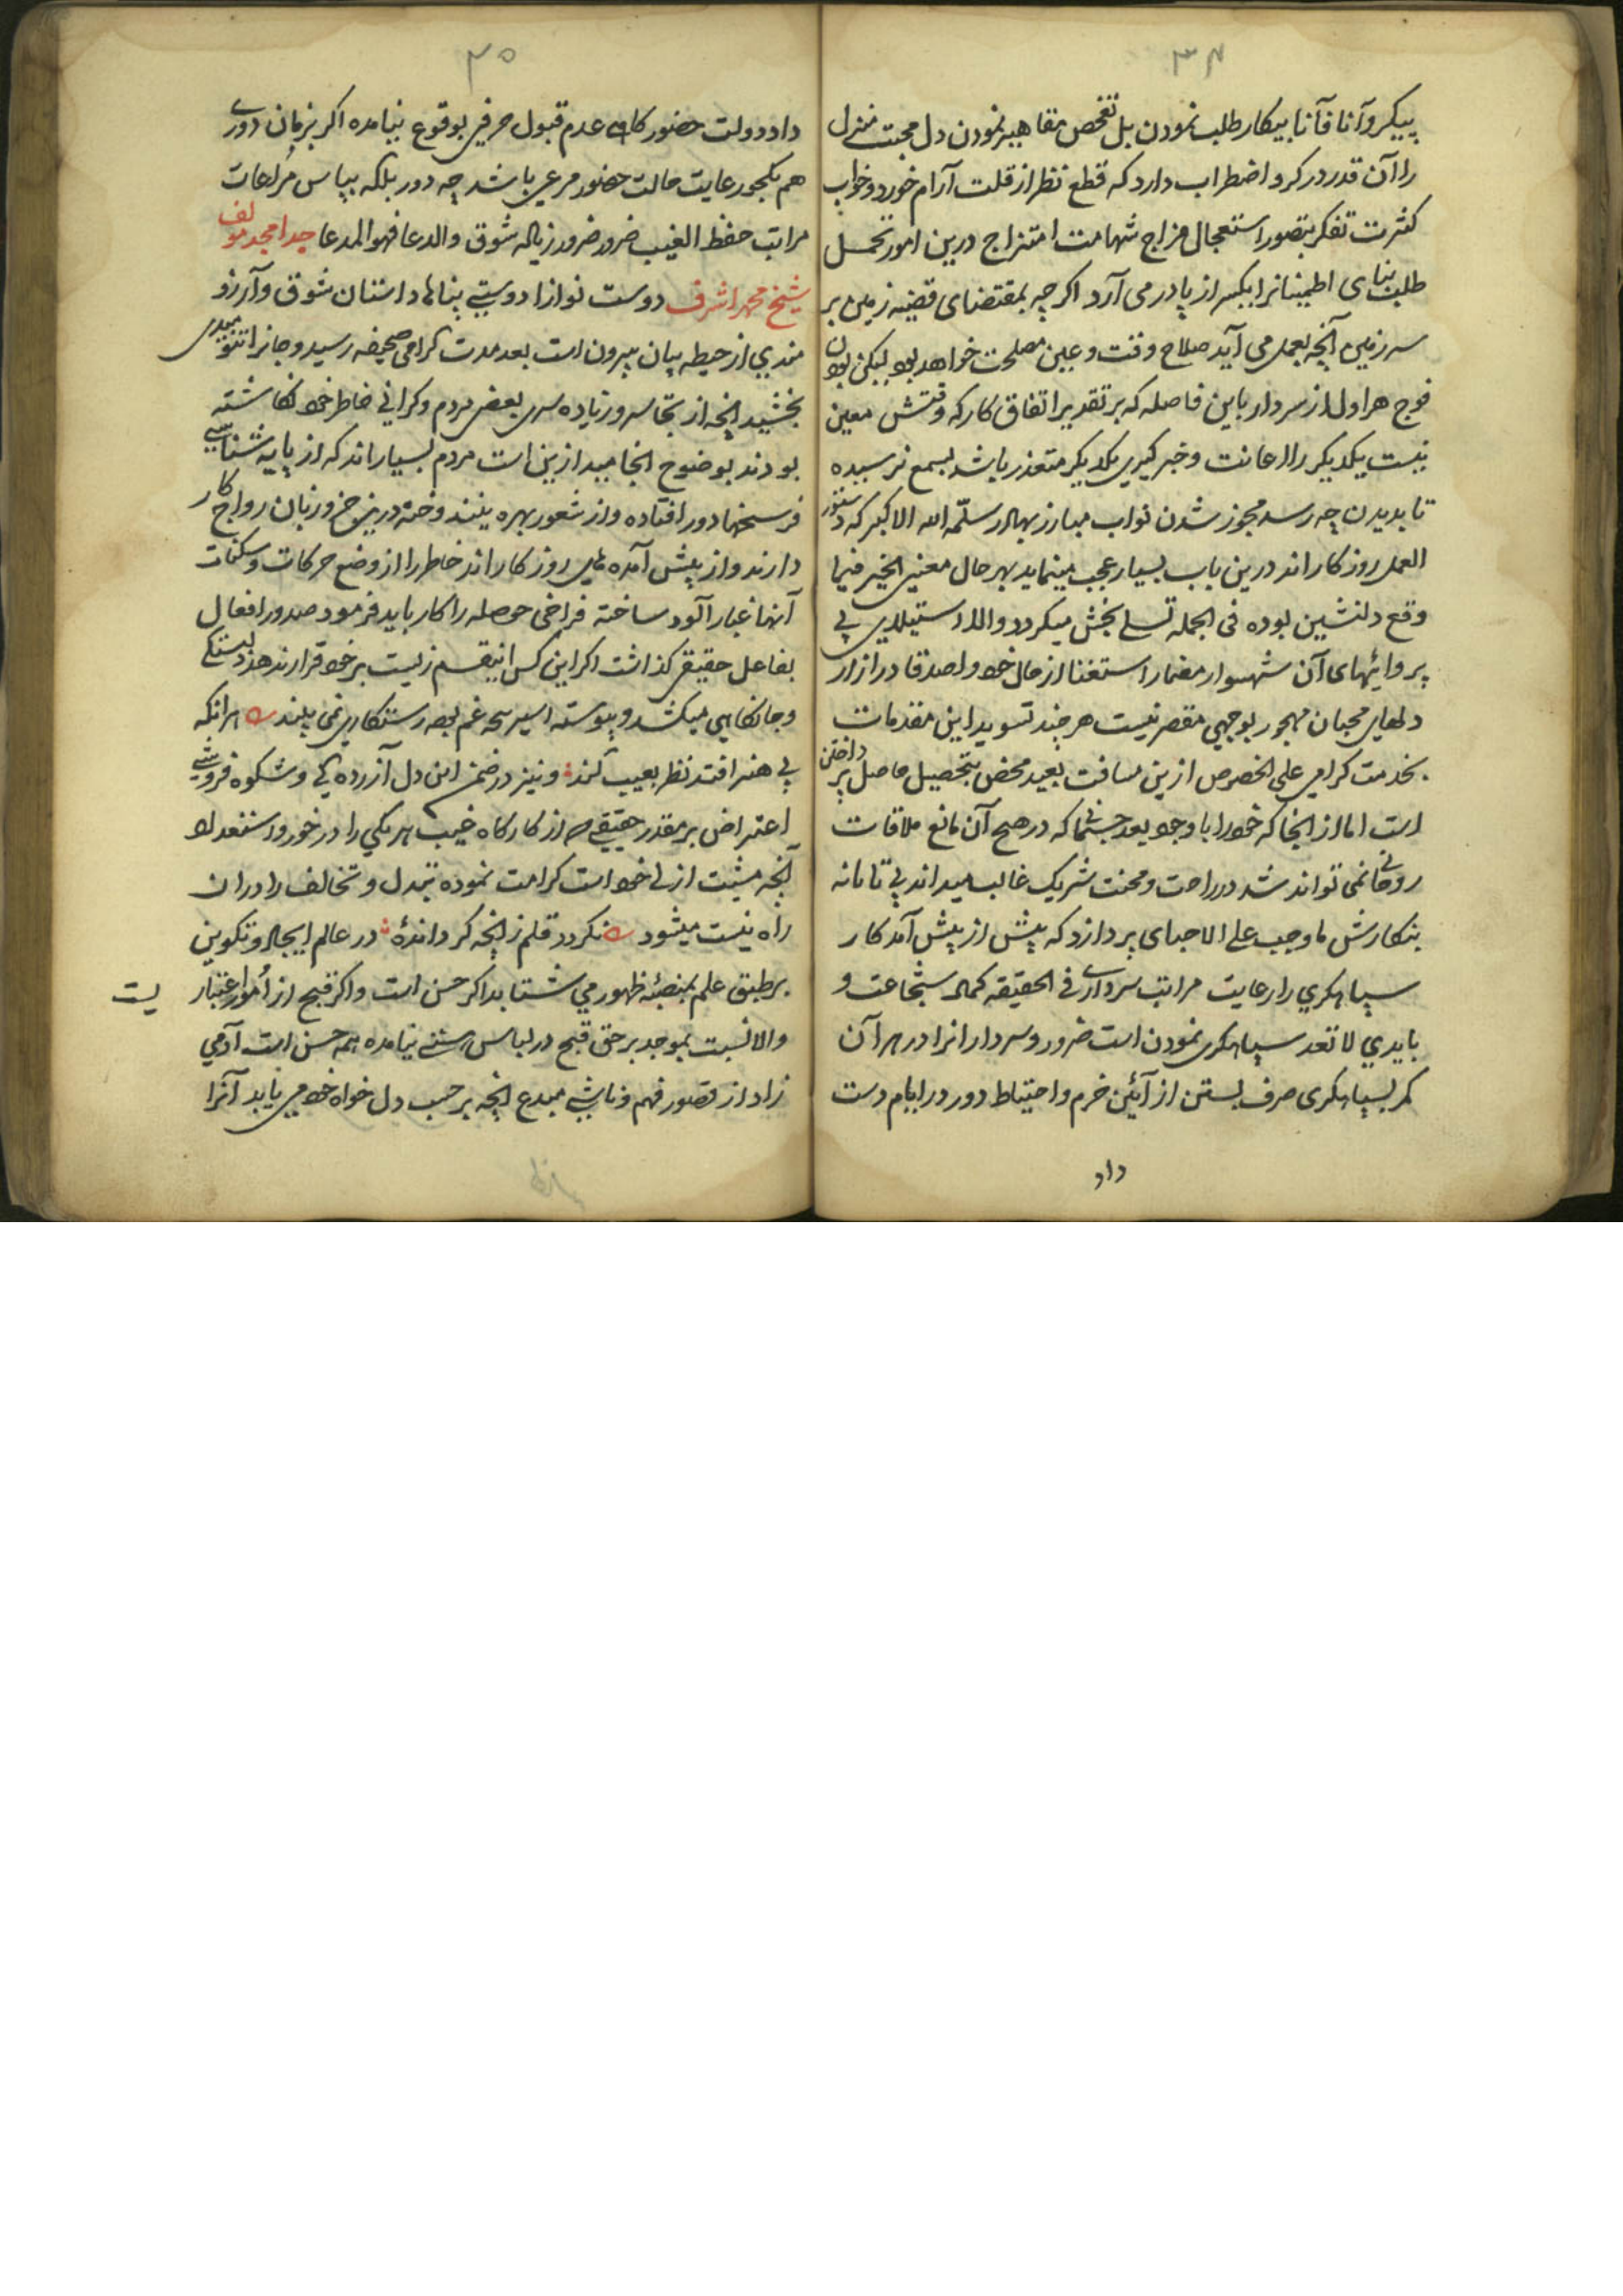 ۳۴
پیکر و آناً فآناً بیکار طلب نمودن بل تفحص نمودن دل محبت منزل
را آن قدر در کرو اضطراب دارد که قطع نظر از قلت آرام خورد و خواب
کثرت تفکر بتصور استعجال مزاج شهامت امتزاج درین امور تحمل
طلب بنای اطمینانرا یکسر از پا در می آرد اکرچه بمقتضای قضیه زمین بر
سر زمین آنچه بعمل می آید صلاح وقت و عین مصلحت خواهد بود لیکن بودن
فوج هراول از سردار باین فاصله که بر تقدیر اتفاق کار که وقتش معین
نیست یکدیکر را اعانت و خبرکیری یکدیکر متعذر باشد بسمع نرسیده
تا بدیدن چه رسد مجوز شدن نواب مبارز بهادر سلّمه الله الاکبر که دستور
العمل روزکار اند درین باب بسیار عجب مینماید بهرحال معنی الخیر فیما
وقع دلنشین بوده فی الجمله تسلی بخش میکردد و الا استیلای بی
پروائیهای آن شهسوار مضمار استغنا از حال خود و اصدقا در ازار
دلهای محبان مهجور بوجهی مقصر نیست هر چند تسوید این مقدمات
بخدمت کرامی علی الخصوص ازین مسافت بعید محض بتحصیل حاصل پرداختن
است اما از انجا که خود را با وجود بعد جسمانی که در هیچ آن مانع ملاقات
روحانی نمی تواند شد در راحت و محنت شریک غالب میداند بی تابانه
بنکارش ما وجب علی الاحبای پردازد که پیش از پیش آمد کار
سپاهکری را رعایت مراتب سرداری فی الحقیقه کمال شجاعت و
بایدی لا تعد سپاهکری نمودن است ضرور و سردار انرا در هر آن
کمر بسپاهکری صرف بستن از آئین حزم و احتیاط دور در ایام دست
داد
۳۵
داد دولت حضور کاهی عدم قبول حرفی بوقوع نیامده اکر بزمان دوری
هم بکجور رعایت حالت حضور مرعی باشد چه دور بلکه بپاس مراعات
مراتب حفظ الغیب ضرور ضرور زیاده شوق والدعا فهو المدعا جد امجد مولف
شیخ محمد اشرف دوست نوازا دوستی پناها داستان شوق و آرزو
مندی از حیطه بیان بیرون است بعد مدت کرامی صحیفه رسید و جانرا تنومندی
بخشید انچه از تجاسر و زیاده سری بعض مردم و کرانی خاطر خود نکاشته
بودند بوضوح انجامید ازین است مردم بسیار اند که از پایه شناسی
فرسخها دور افتاده و از شعور بهره نیندوخته درین جزو زمان رواج کار
دارند و از پیش آمده های روزکار اند خاطر را از وضع حرکات و سکنات
آنها غبار آلود ساخته فراخی حوصله را کار باید فرمود صدور افعال
بفاعل حقیقی کذاشت اکر این کس انیقسم زیست بر خود قرار ندهد زد
و جانکاهی میکشد و پیوسته اسیر غم بوده رستکاری نمی بیند هر انکه
بی هنر افتد نظر بعیب کند و نیز در ضمن این دل آزرده کی و شکوه فروشی
اعتراض بر مقدر حقیقی چه از کارکاه غیب هر یکی را در خور استعداد
آنچه مشیت ازلی خواست کرامت نموده تبدل و تخالف را در ان
راه نیست میشود نکردد قلم ز انچه کرداندهٔ در عالم ایجاد و تکوین
بر طبق علم بمنصئه ظهور می شتابد اکر حسن است و اکر قبح از امور اعتباریست
والا نسبت بموجد بر حق قبح در لباس هستی نیامده همه حسن است آدمی
زاد از قصور فهم مبدع انچه بر حسب دل خواه خود می یابد آنرا